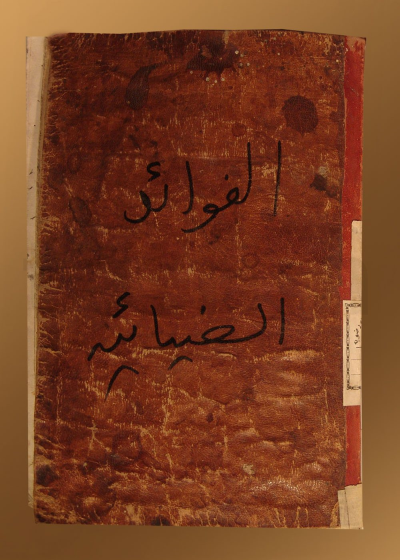 الفوائد
الضيائيه